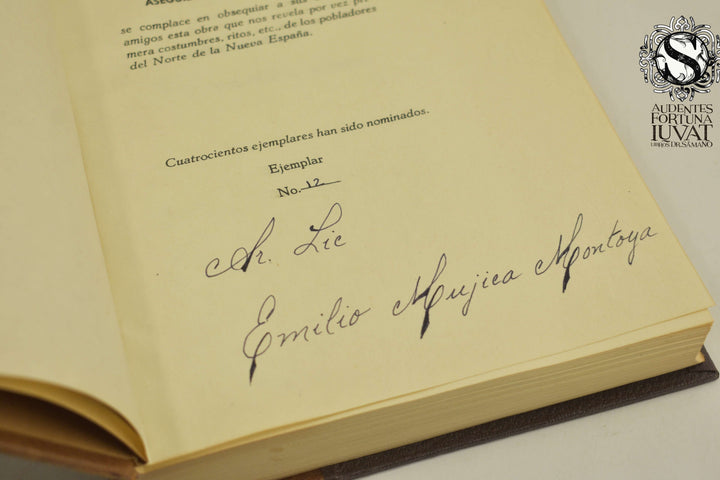 se complace en obsequiar a sus
amigos esta obra que nos revela por vez pri-
mera costumbres, ritos, etc., de los pobladores
del Norte de la Nueva España.
Cuatrocientos ejemplares han sido nominados.
Ejemplar
No. 12
Sr. Lic
Emilio Mujica Montoya
S
AUDENTES
FORTUNA
IUVAT
LIBROS DR. SÁMANO